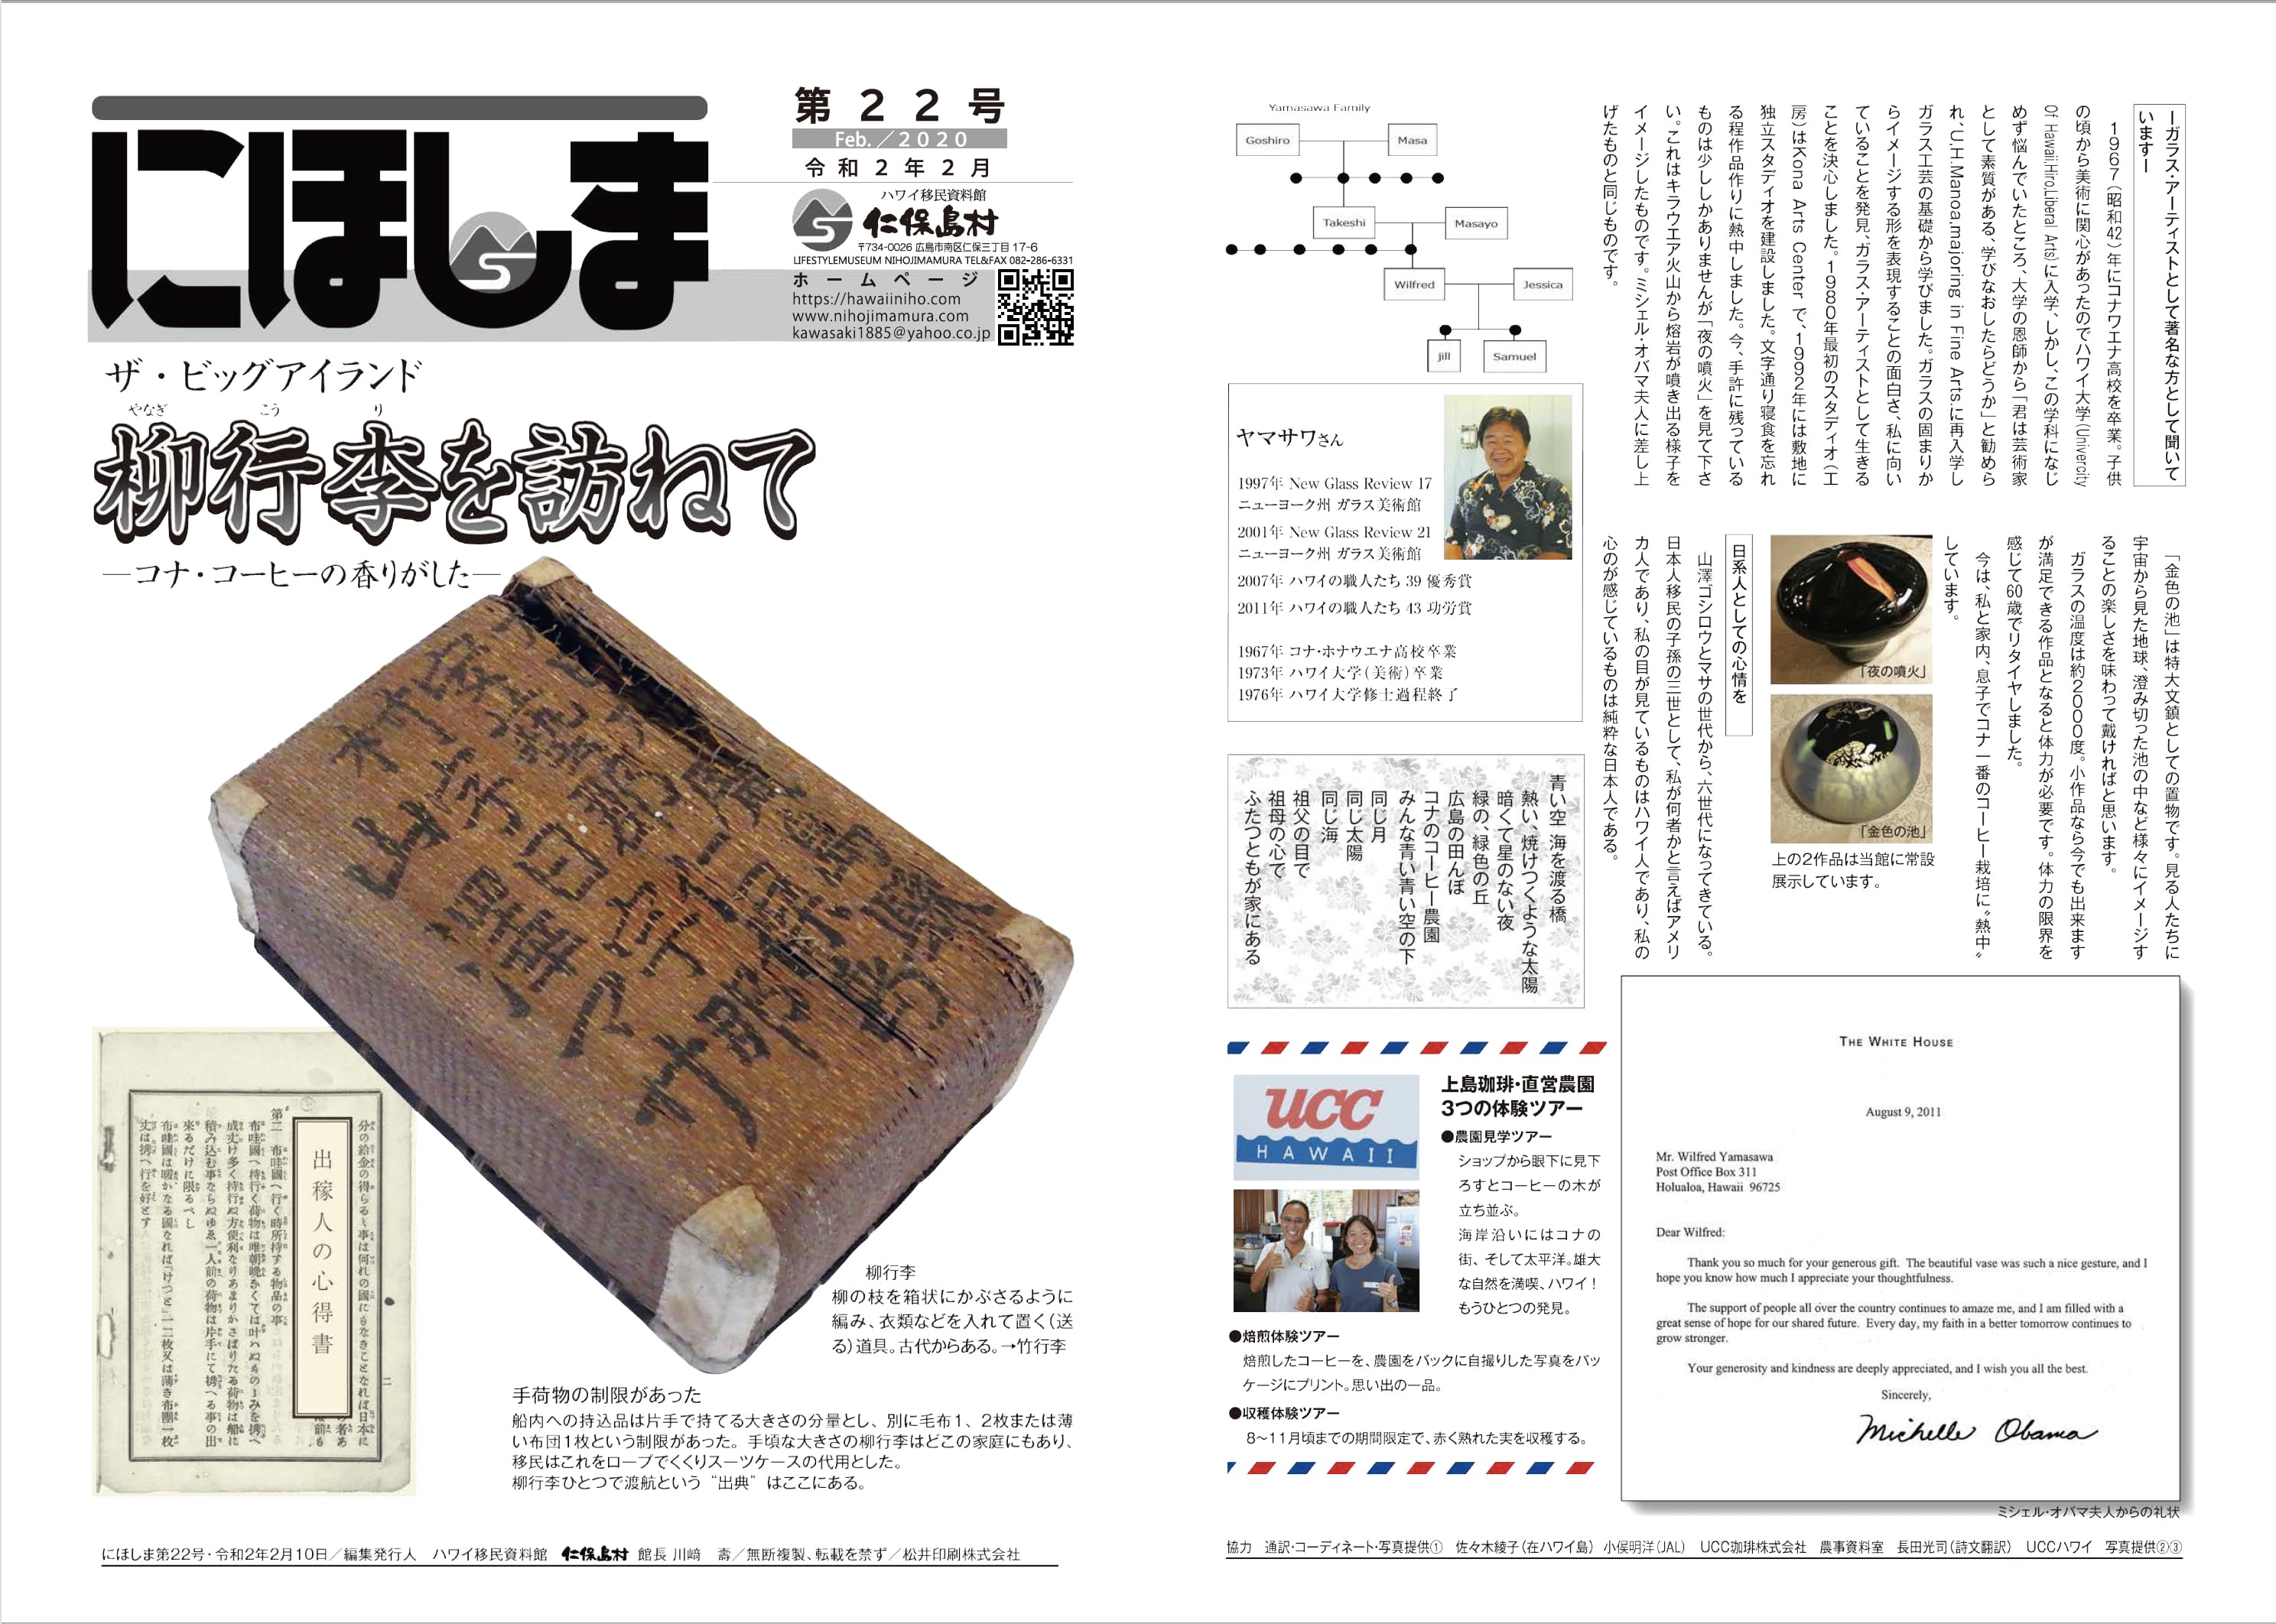 にほしま
第22号
Feb.／2020
令和2年2月
ハワイ移民資料館
仁保島村
〒734-0026 広島市南区仁保三丁目17-6
LIFESTYLEMUSEUM NIHOJIMAMURA TEL&FAX 082-286-6331
ホームページ
https://hawaiiniho.com
www.nihojimamura.com
kawasaki1885@yahoo.co.jp
ザ・ビッグアイランド
やなぎ こう り
柳行李を訪ねて
―コナ・コーヒーの香りがした―
出稼人の心得書
柳行李
柳の枝を箱状にかぶさるように
編み、衣類などを入れて置く（送
る）道具。古代からある。→竹行李
手荷物の制限があった
船内への持込品は片手で持てる大きさの分量とし、別に毛布1、2枚または薄
い布団1枚という制限があった。手頃な大きさの柳行李はどこの家庭にもあり、
移民はこれをロープでくくりスーツケースの代用とした。
柳行李ひとつで渡航という“出典”はここにある。
にほしま第22号・令和2年2月10日／編集発行人　ハワイ移民資料館　仁保島村　館長 川﨑　壽／無断複製、転載を禁ず／松井印刷株式会社
ーガラス・アーティストとして著名な方として聞いて
いますー
1967（昭和42）年にコナワエナ高校を卒業。子供
の頃から美術に関心があったのでハワイ大学（Univercity
Of Hawaii.Hiro,Liberal Arts）に入学、しかし、この学科になじ
めず悩んでいたところ、大学の恩師から「君は芸術家
として素質がある、学びなおしたらどうか」と勧めら
れ、U.H.Manoa,majoring in Fine Arts.に再入学し
ガラス工芸の基礎から学びました。ガラスの固まりか
らイメージする形を表現することの面白さ、私に向い
ていることを発見、ガラス・アーティストとして生きる
ことを決心しました。1980年最初のスタディオ（工
房）はKona Arts Center で、1992年には敷地に
独立スタディオを建設しました。文字通り寝食を忘れ
る程作品作りに熱中しました。今、手許に残っている
ものは少ししかありませんが「夜の噴火」を見て下さ
い。これはキラウエア火山から熔岩が噴き出る様子を
イメージしたものです。ミシェル・オバマ夫人に差し上
げたものと同じものです。
Yamasawa Family
Goshiro
Masa
Takeshi
Masayo
Wilfred
Jessica
jill
Samuel
ヤマサワさん
1997年 New Glass Review 17
ニューヨーク州 ガラス美術館
2001年 New Glass Review 21
ニューヨーク州 ガラス美術館
2007年 ハワイの職人たち 39 優秀賞
2011年 ハワイの職人たち 43 功労賞
1967年 コナ・ホナウエナ高校卒業
1973年 ハワイ大学（美術）卒業
1976年 ハワイ大学修士過程終了
「金色の池」は特大文鎮としての置物です。見る人たちに
宇宙から見た地球、澄み切った池の中など様々にイメージす
ることの楽しさを味わって戴ければと思います。
ガラスの温度は約2000度。小作品なら今でも出来ます
が満足できる作品となると体力が必要です。体力の限界を
感じて60歳でリタイヤしました。
今は、私と家内、息子でコナ一番のコーヒー栽培に〝熱中〟
しています。
「夜の噴火」
「金色の池」
上の2作品は当館に常設
展示しています。
日系人としての心情を
山澤ゴシロウとマサの世代から、六世代になってきている。
日本人移民の子孫の三世として、私が何者かと言えばアメリ
カ人であり、私の目が見ているものはハワイ人であり、私の
心のが感じているものは純粋な日本人である。
青い空 海を渡る橋
熱い、焼けつくような太陽
暗くて星のない夜
緑の、緑色の丘
広島の田んぼ
コナのコーヒー農園
みんな青い青い空の下
同じ月
同じ太陽
同じ海
祖父の目で
祖母の心で
ふたつともが家にある
UCC
HAWAII
上島珈琲・直営農園
3つの体験ツアー
●農園見学ツアー
ショップから眼下に見下
ろすとコーヒーの木が
立ち並ぶ。
海岸沿いにはコナの
街、そして太平洋。雄大
な自然を満喫、ハワイ！
もうひとつの発見。
●焙煎体験ツアー
焙煎したコーヒーを、農園をバックに自撮りした写真をパッ
ケージにプリント。思い出の一品。
●収穫体験ツアー
8〜11月頃までの期間限定で、赤く熟れた実を収穫する。
THE WHITE HOUSE
August 9, 2011
Mr. Wilfred Yamasawa
Post Office Box 311
Holualoa, Hawaii 96725
Dear Wilfred:
Thank you so much for your generous gift. The beautiful vase was such a nice gesture, and I
hope you know how much I appreciate your thoughtfulness.
The support of people all over the country continues to amaze me, and I am filled with a
great sense of hope for our shared future. Every day, my faith in a better tomorrow continues to
grow stronger.
Your generosity and kindness are deeply appreciated, and I wish you all the best.
Sincerely,
Michelle Obama
ミシェル・オバマ夫人からの礼状
協力　通訳・コーディネート・写真提供①　佐々木綾子（在ハワイ島）　小俣明洋（JAL）　UCC珈琲株式会社　農事資料室　長田光司（詩文翻訳）　UCCハワイ　写真提供②③